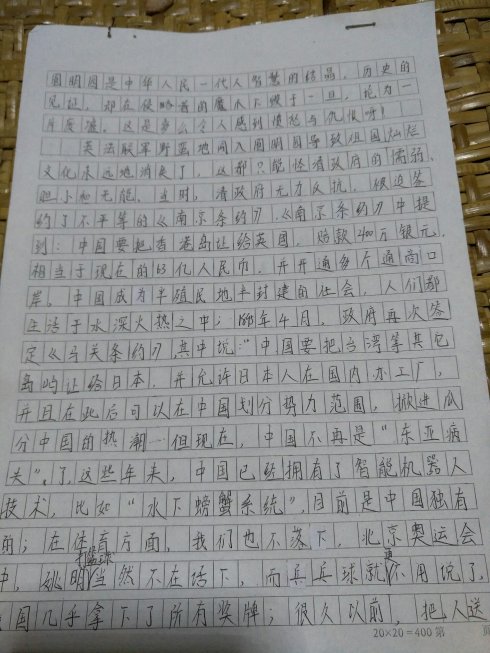 圆明园是中华人民一代人智慧的结晶，历史的
见证，却在侵略者的魔爪下毁于一旦，沦为一
片废墟。这是多么令人感到愤怒与仇恨呀！
英法联军野蛮地闯入圆明园导致祖国灿烂
文化永远地消失了，这都只能怪清政府的懦弱、
胆小和无能。当时，清政府无力反抗，被迫签
约了不平等的《南京条约》，《南京条约》中提
到：中国要把香港岛让给英国，赔款400万银元，
相当于现在的63亿人民币，并开通多个通商口
岸。中国成为半殖民地半封建的社会，人们都
生活于水深火热之中；1895年4月，政府再次签
定《马关条约》，其中说：“中国要把台湾等其它
岛屿让给日本，并允许日本人在国内办工厂，
并且在此后可以在中国划分势力范围，掀进瓜
分中国的热潮…但现在，中国不再是“东亚病
夫”了，这些年来，中国已经拥有了智能机器人
技术，比如“水下螃蟹系统”，目前是中国独有
的；在体育方面，我们也不落下，北京奥运会
中，姚明打篮球当然不在话下，而乒乓球就更不用说了，
国几乎拿下了所有奖牌；很久以前，把人送
20×20=400 第 页